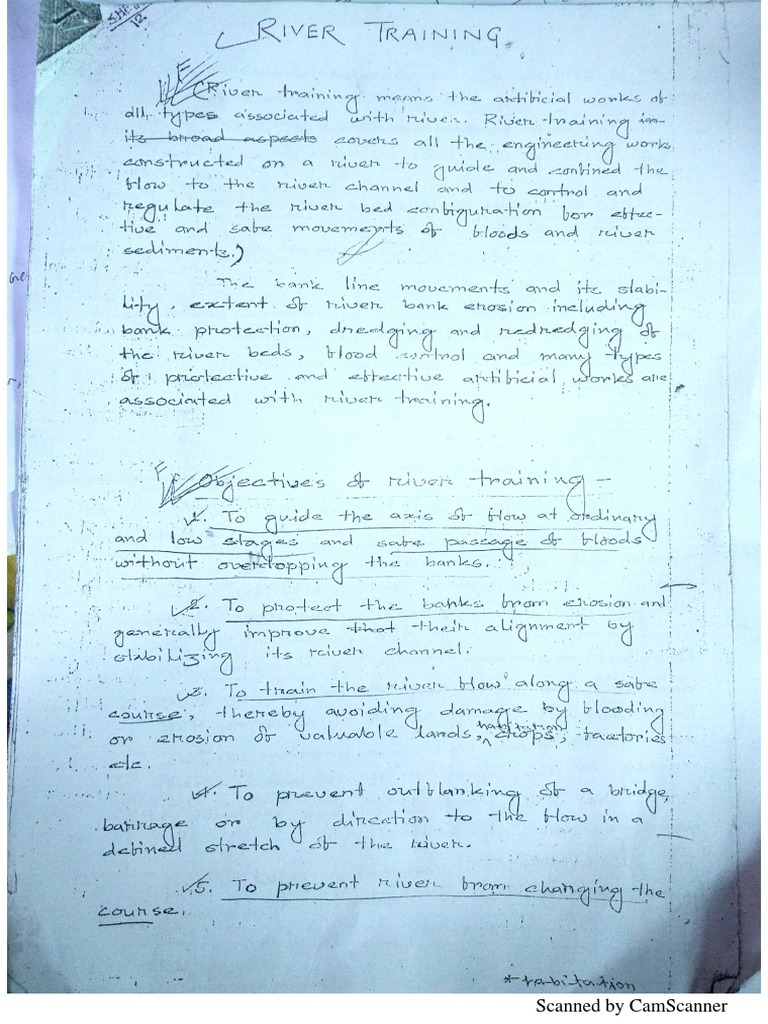 RIVER TRAINING
(River training means the artificial works of
all types associated with river. River training in
its broad aspects covers all the engineering works
constructed on a river to guide and confined the
flow to the river channel and to control and
regulate the river bed configuration for effec-
tive and safe movements of floods and river
sediments.)
The bank line movements and its stabi-
lity, extent of river bank erosion including
bank protection, dredging and redredging of
the river beds, flood control and many types
of protective and effective artificial works are
associated with river training.
Objectives of river training -
1. To guide the axis of flow at ordinary
and low stages and safe passage of floods
without overtopping the banks.
2. To protect the banks from erosion and
generally improve that their alignment by
stabilizing its river channel.
3. To train the river flow along a safe
course, thereby avoiding damage by flooding
or erosion of valuable lands, crops, factories
etc.
4. To prevent outflanking of a bridge,
barrage or by direction to the flow in a
defined stretch of the river.
5. To prevent river from changing the
course.
*habitation
Scanned by CamScanner